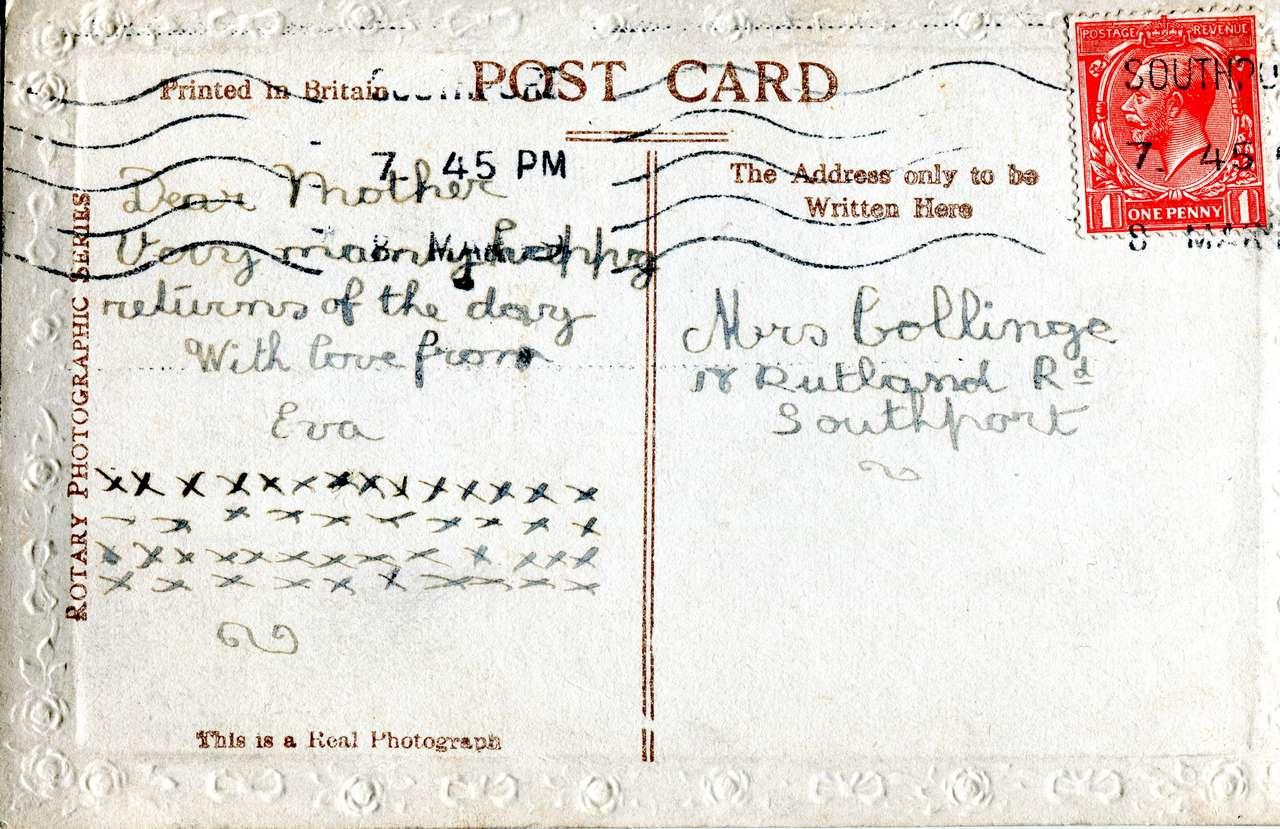 POST CARD
Printed in Britain
The Address only to be
Written Here
ROTARY PHOTOGRAPHIC SERIES
This is a Real Photograph
POSTAGE REVENUE
ONE PENNY
1 1
SOUTHPO
7. 45
8 MAR
7. 45 PM
8
Dear Mother
Very many happy
returns of the day
With love from
Eva
xx x x x x x x x x x x x x
Mrs Collinge
Rutland Rd
Southport